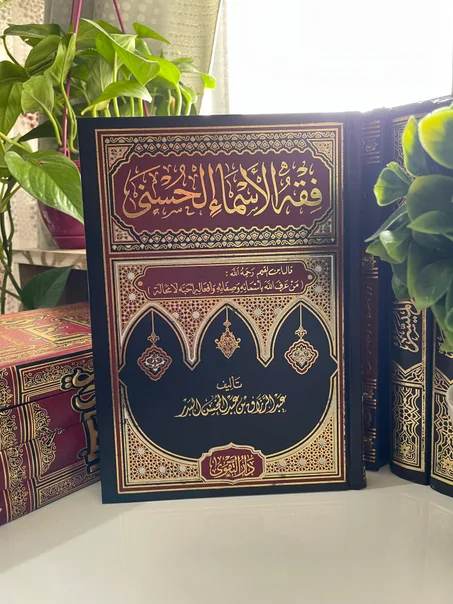 فقه الأسماء الحسنى
قال ابن القيم رحمه الله :
( من عرف الله بأسمائه وصفاته وأفعاله أحبه لا محالة )
تأليف
عبد الرزاق بن عبد المحسن البدر
دار التقوى